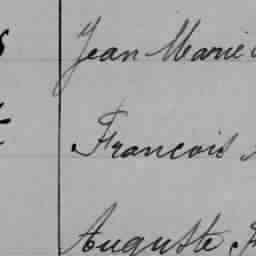 Jean Marie
Francois
Auguste